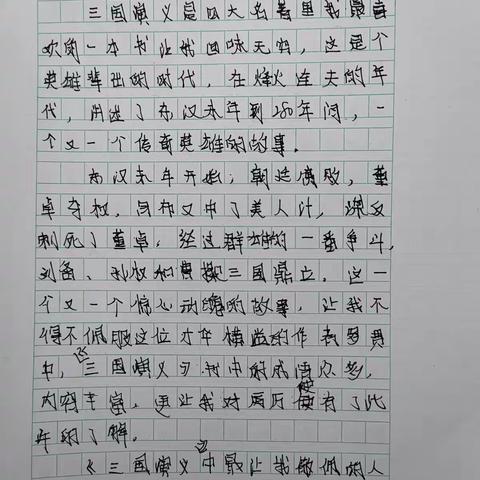 三国演义是四大名著里我最喜
欢的一本书让我回味无穷，这是个
英雄辈出的时代，在烽火连天的年
代，用进了东汉末年到280年间，一
个又一个传奇英雄的故事。
东汉末年开始，朝廷腐败，董
卓夺权，吕布又中了美人计，
刺死了董卓，经过群雄的一番争斗，
刘备、孙权和曹操三国鼎立。这一
个又一个惊心动魄的故事，让我不
得不佩服这位才华横溢的作者罗贯
中，三国演义书中的成语众多，
内容丰富，更让我对历史有了
的了解。
《三国演义》中最让我敬佩的人